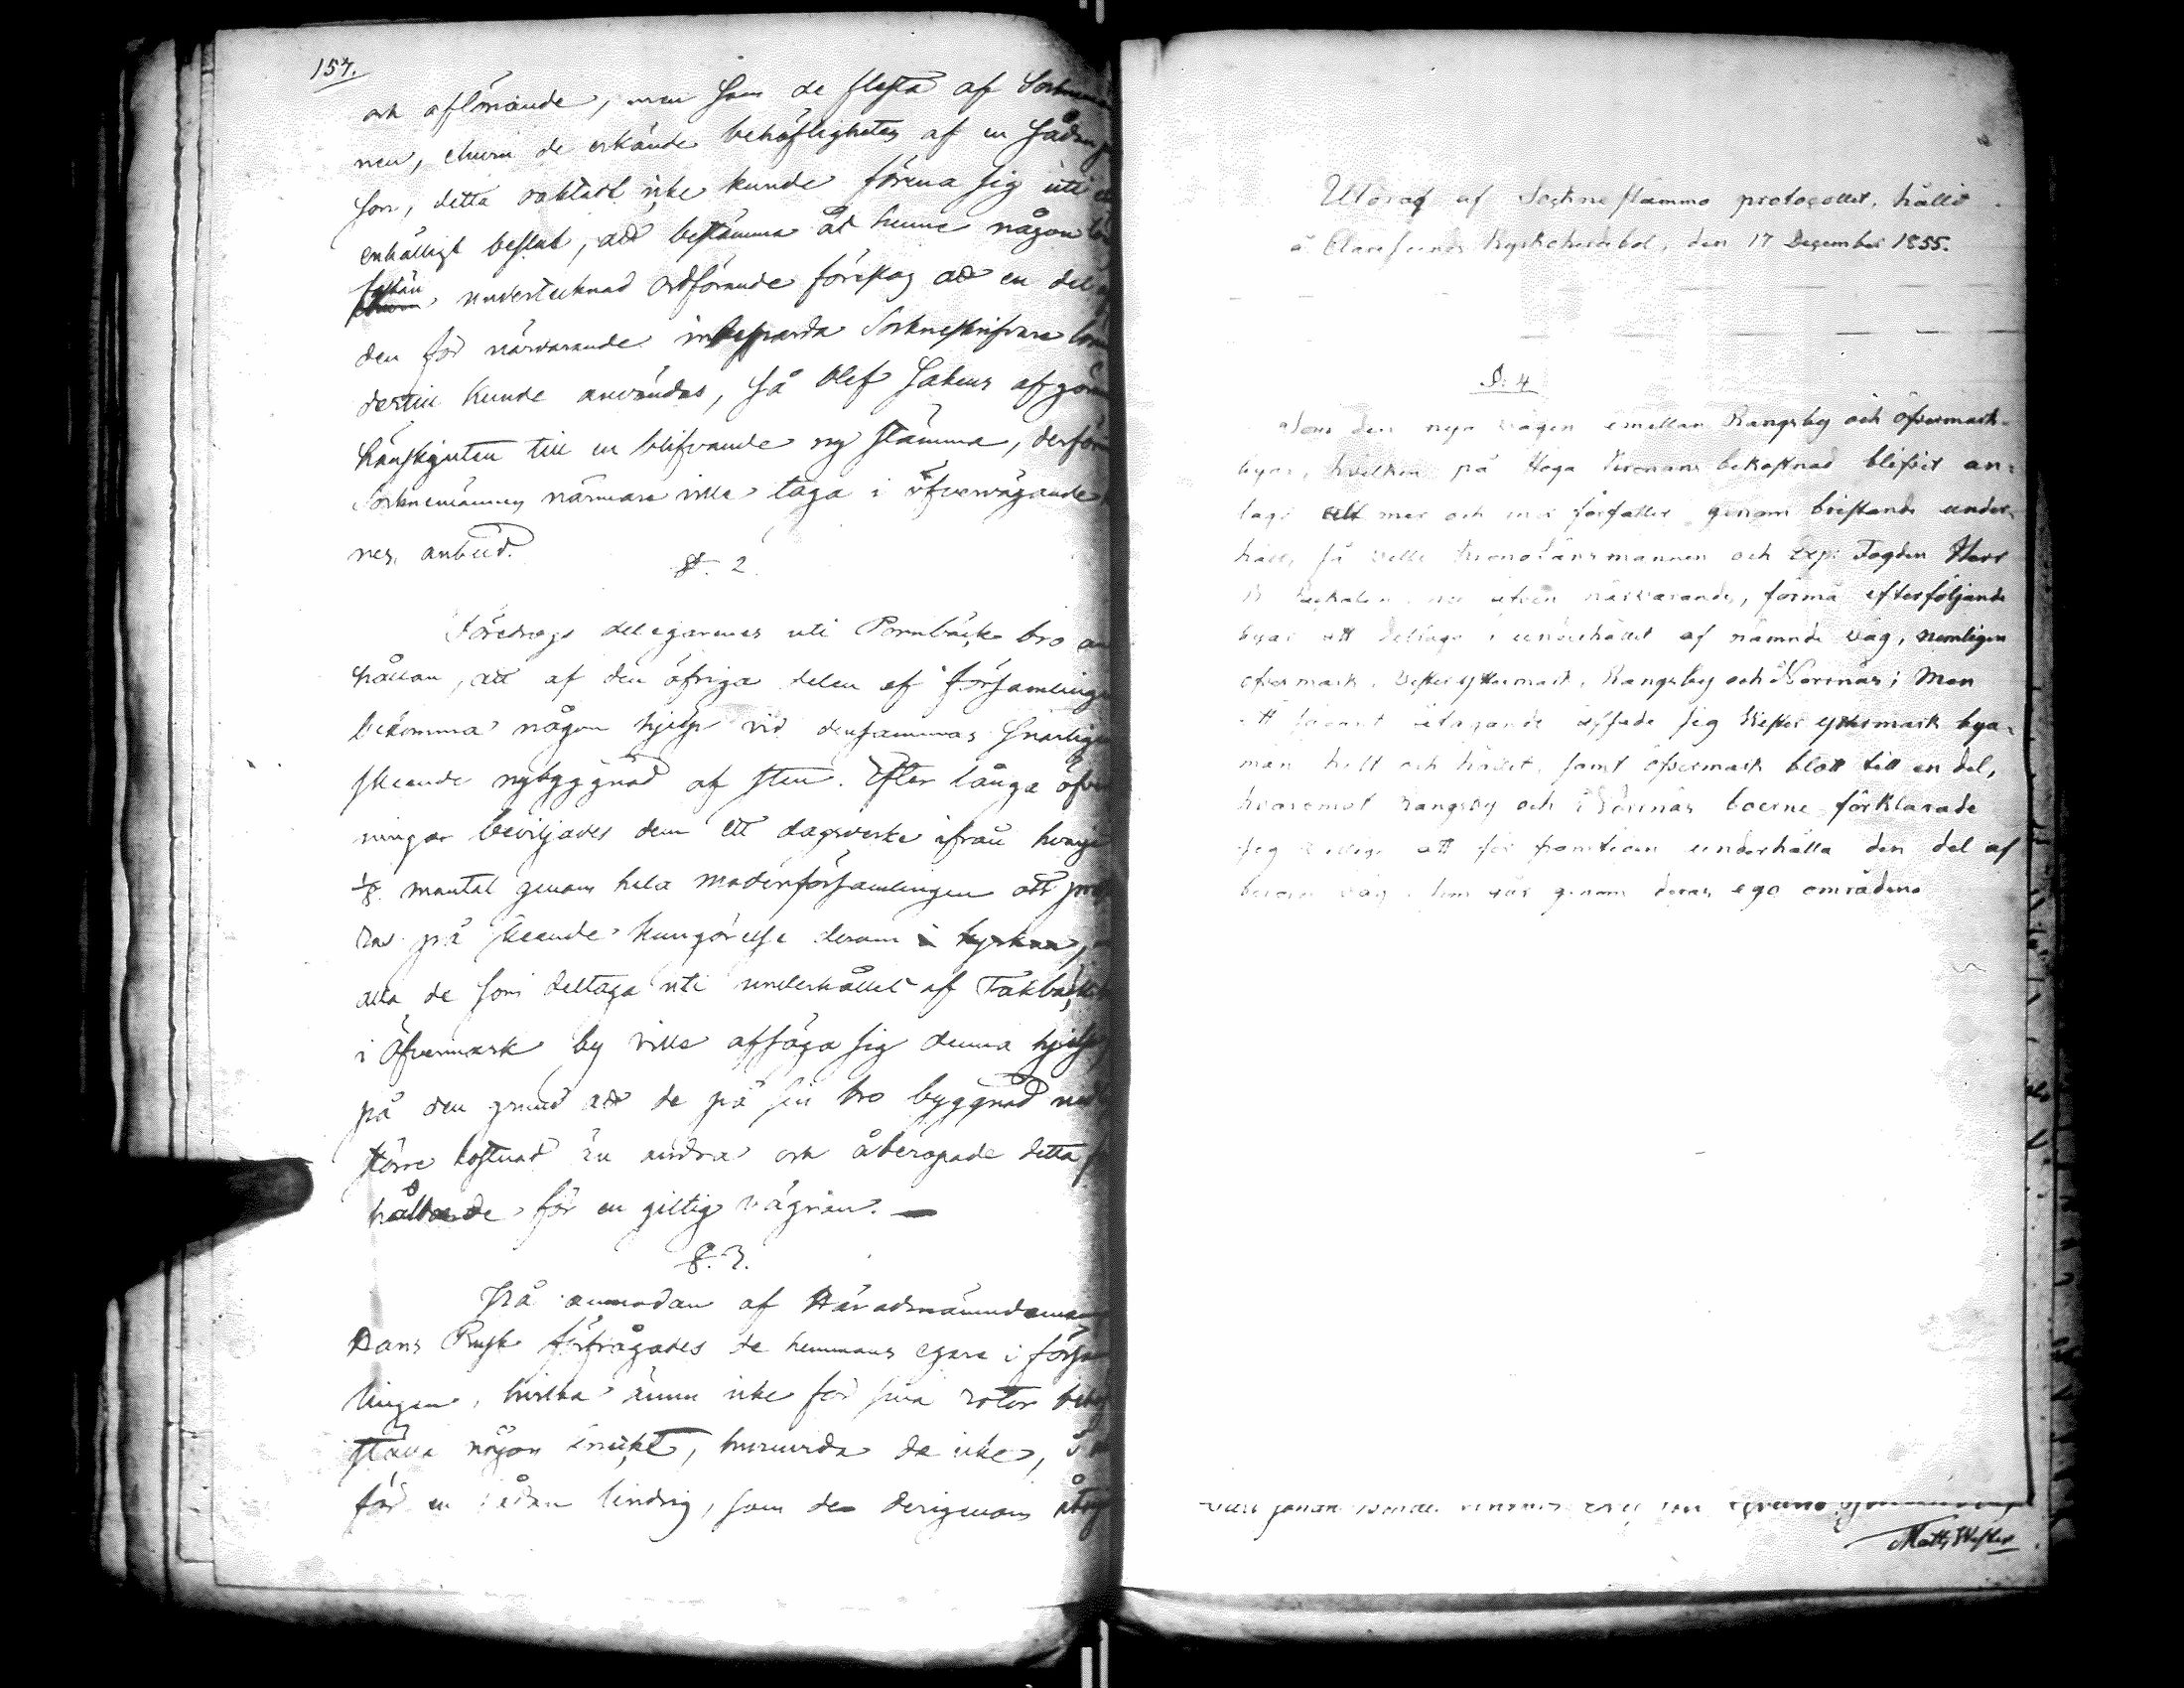 157.
och aflönande, men som de flesta af Sockenmän
nen, churu de erkände behöfligheten af en sådan
som, detta oaktadt icke kunde förena sig uti
enhälligt beslut, att bestämma åt henne någon lön
fastän undertecknad ordförande föreslog att en del
den för närvarande inbesparda Sockneskrifvare lön
dertill kunde användas, så blef sakens afgör
hänskjuten till en blifvande ny stämma, derför
Socknemännen närmare ville taga i öfvervägande
nes anbud.
§. 2.
Föredrogs delegarnes uti Pornbäck bro an
hållan, att af den öfriga delen af församlinge
bekomma någon hjelp vid densammas snarligen
skeende nybyggnad af sten. Efter långa öfver
ningar beviljades dem ett dagsverke ifrån hvarje
1/8 mantal genom hela moderförsamlingen att
på skeende kungörelse derom i kyrkan,
alla de som deltaga uti underhållet af Takbäck
i Öfvermark by ville afsäga sig denna hjelp
på den grund att de på sin bro byggnad
större kostnad än andra och åberopade detta
hållande för en giltig vägran. —
§. 3.
På anmodan af Häradsnämndeman
Hans Rusk förfrågades de hemmans egare i försam
lingen, hvilka ännu icke för sina rotar
ställa någon, huruvida de icke,
för en sådan lindrig, som de derigenom
Utdrag af Sockne stämmo protocollet, hållit
å Claresunds Kyrkoherdebol, den 17 December 1855.
§. 4
Som den nya vägen emellan Rangsby och öfvermark
byar, hvilken på Höga Kronans bekostnad blifvit an=
lagd allt mer och mer förfaller genom bristande under=
håll, så ville KronoLänsmannen och Exp: Fogden Herr
närvarande, förmå efterföljande
byar att deltaga i underhållet af nämnde väg, nemligen
öfvermark, Vester yttermark, Rangsby och Norrnäs; Men
ett sådant åtagande sig Vester yttermark bya=
män helt och hållet, samt öfvermark blott till en del,
hvaremot Rangsby och Norrnäs boerne förklarade
sig villige att för framtiden underhålla den del af
berörde väg, som går genom deras ego områden
Matts Wester